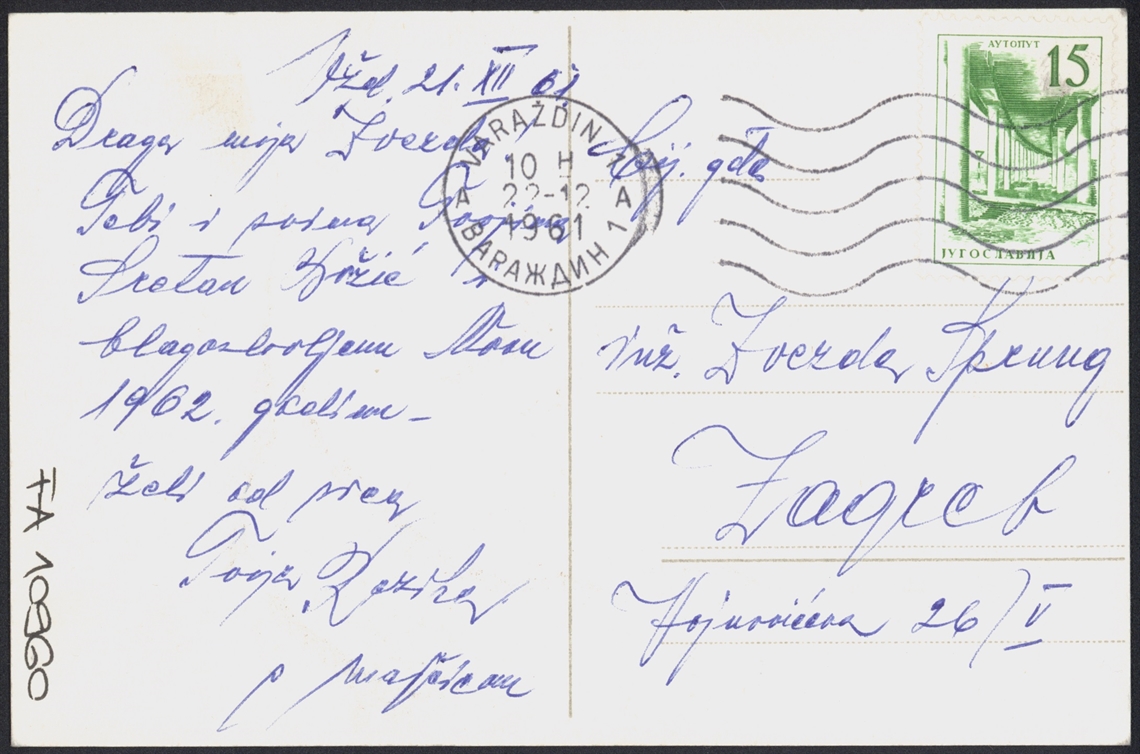 Vžd. 21. XII 61
Draga moja Zvezda,
Tebi i svima Tvojima
Sretan Božić i
blagoslovljenu Novu
1962. godinu -
želi od srca
Tvoja Rozika
VARAŽDIN 1
10 H
A 22-12 A
1961
ВАРАЖДИН 1
АУТОПУТ
15
ЈУГОСЛАВИЈА
Cij. gđa
inž. Zvezda Sprung
Zagreb
Vojnovićeva 26/V
FA 10960